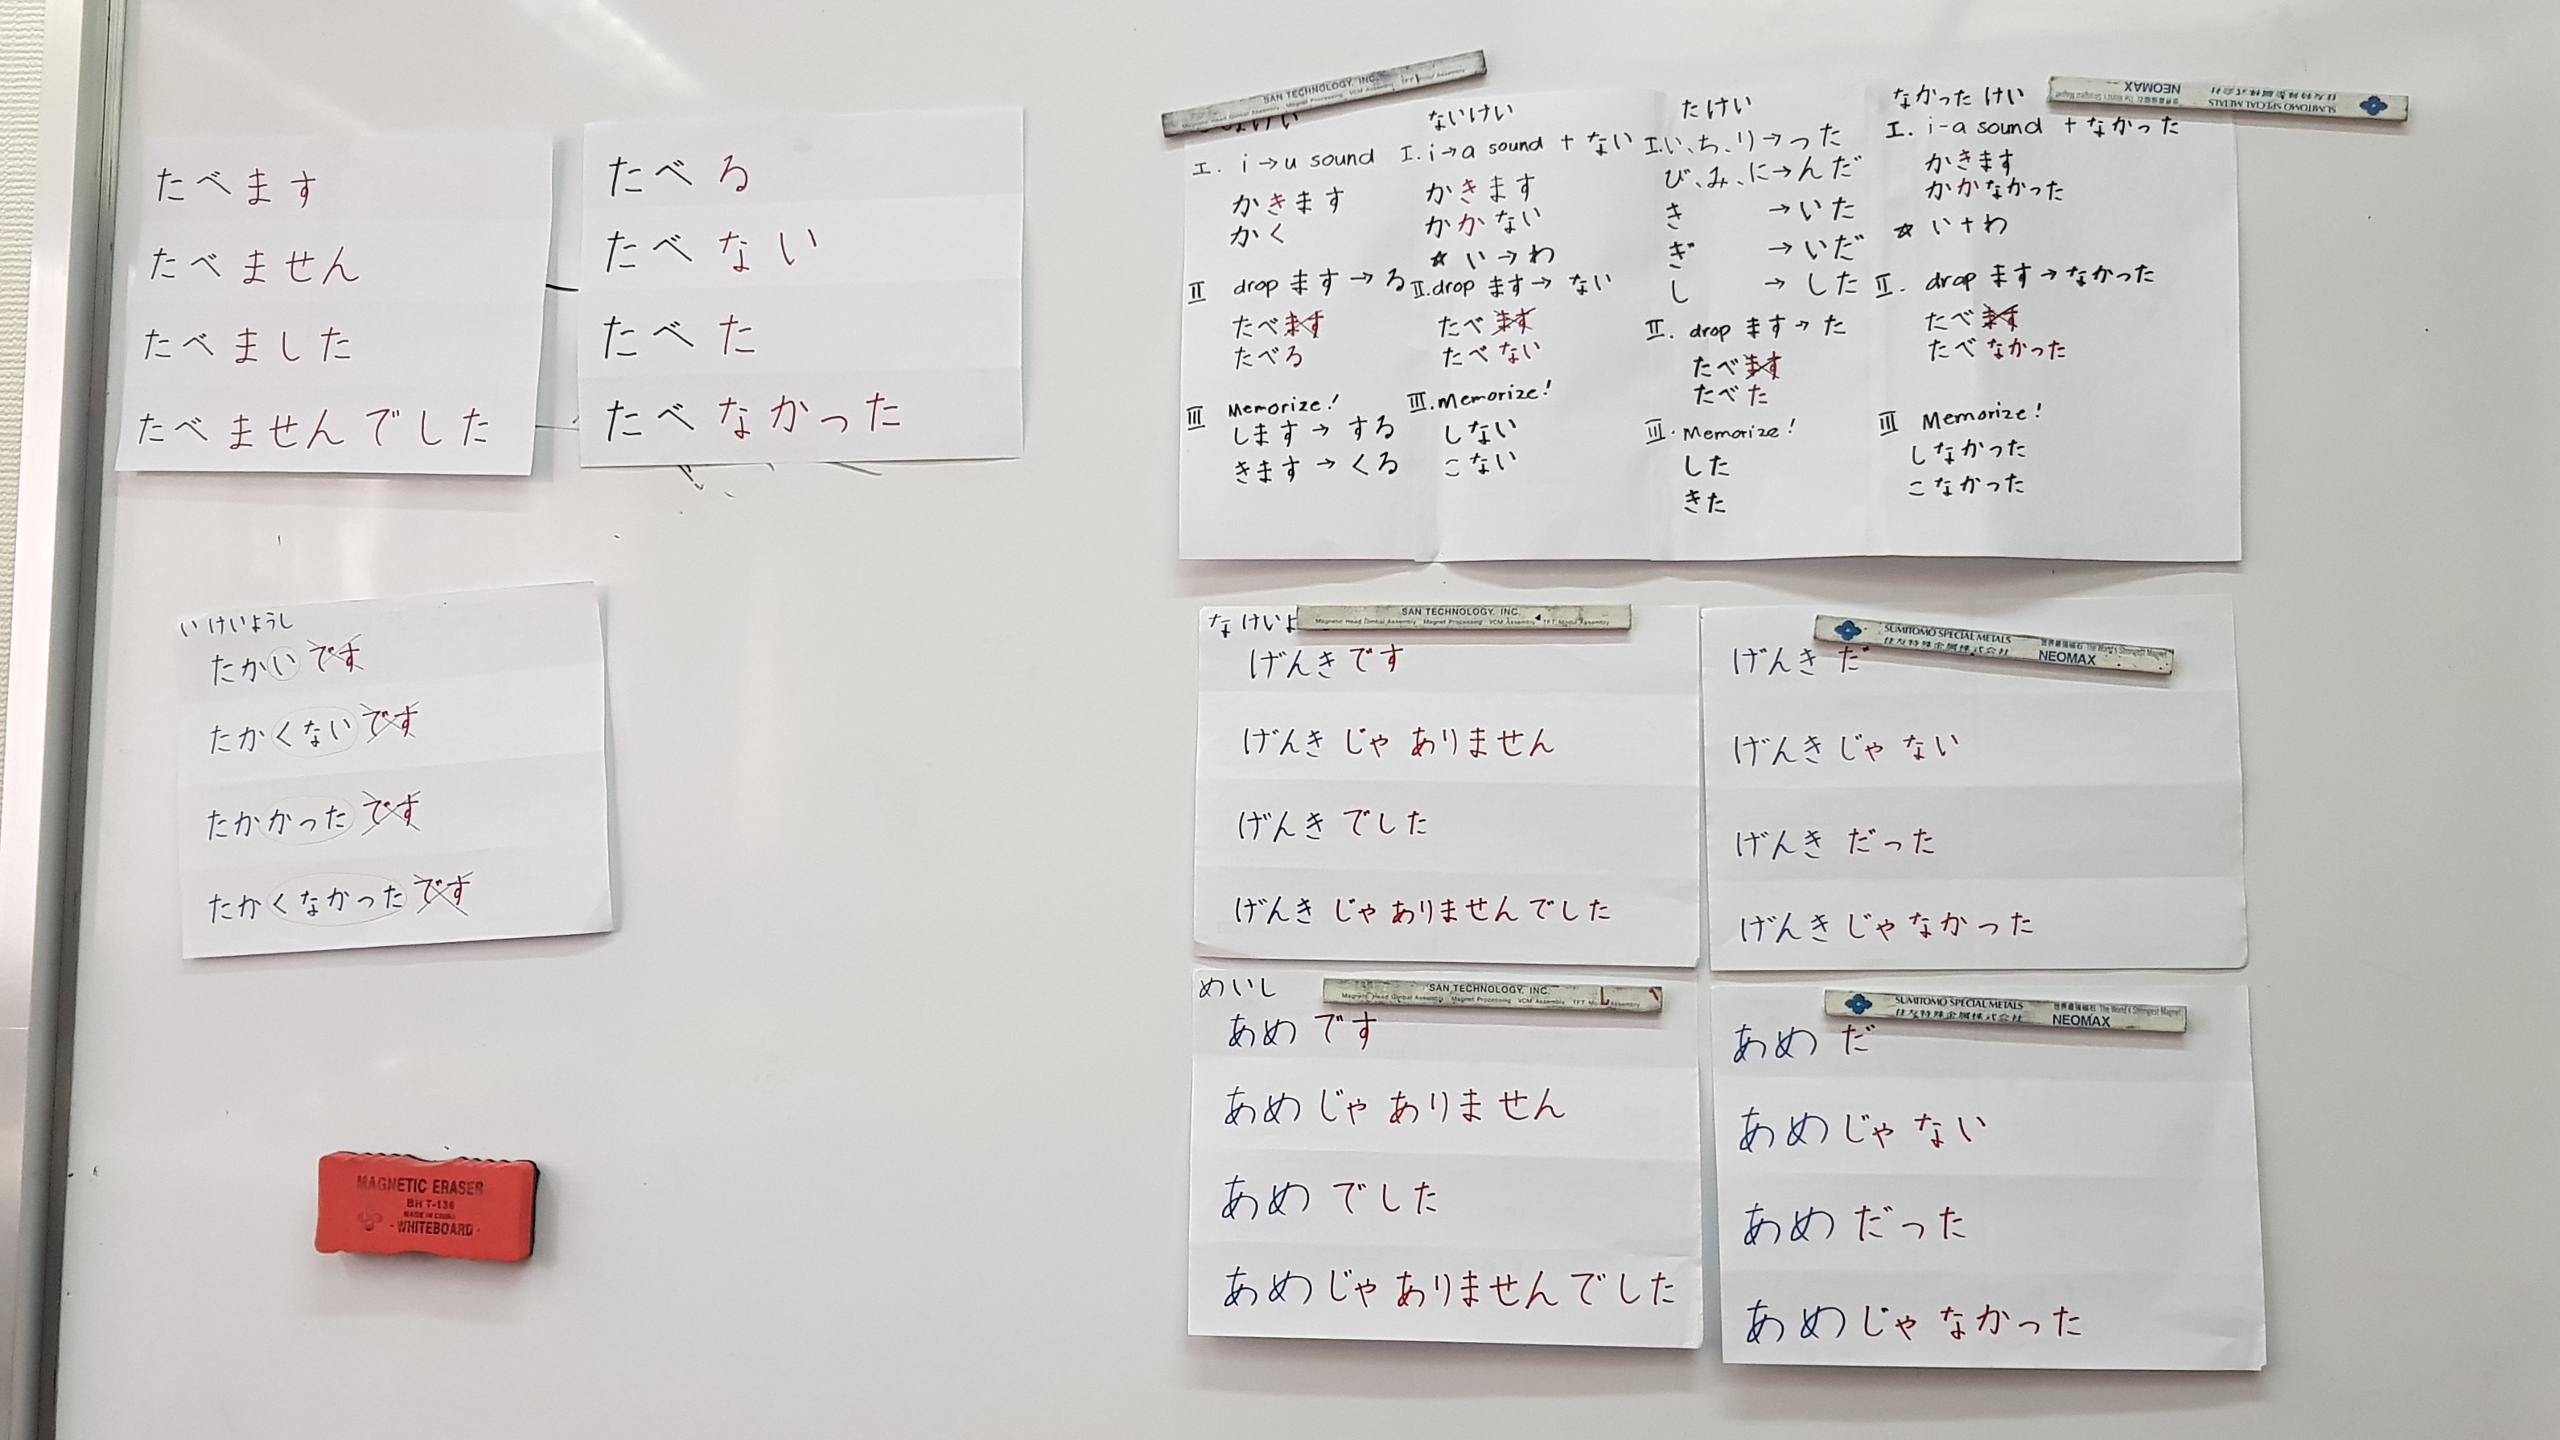 たべます
たべません
たべました
たべませんでした
たべる
たべない
たべた
たべなかった
SAN TECHNOLOGY, INC.
I. i→u sound
かきます
かく
II drop ます→る
たべます
たべる
III Memorize!
します→する
きます→くる
ないけい
I. i→a sound + ない
かきます
かかない
☆ い→わ
II. drop ます→ ない
たべます
たべない
III. memorize!
しない
こない
たけい
I.い、ち、り→った
び、み、に→んだ
き →いた
ぎ →いだ
し → した
II. drop ます→ た
たべます
たべた
III. Memorize!
した
きた
SUMITOMO SPECIAL METALS
住友特殊金属株式会社
NEOMAX
なかった けい
I. i-a sound + なかった
かきます
かかなかった
☆ い+わ
II. drop ます→なかった
たべます
たべなかった
III Memorize!
しなかった
こなかった
いけいようし
たかいです
たかくないです
たかかったです
たかくなかったです
なけいよ
SAN TECHNOLOGY, INC.
げんきです
げんきじゃありません
げんきでした
げんきじゃありませんでした
SUMITOMO SPECIAL METALS
住友特殊金属株式会社
世界最強磁石 The World's Strongest Magnet
NEOMAX
げんきだ
げんきじゃない
げんきだった
げんきじゃなかった
めいし
SAN TECHNOLOGY, INC.
あめです
あめじゃありません
あめでした
あめじゃありませんでした
SUMITOMO SPECIAL METALS
住友特殊金属株式会社
世界最強磁石 The World's Strongest Magnet
NEOMAX
あめだ
あめじゃない
あめだった
あめじゃなかった
MAGNETIC ERASER
BH T-136
MADE IN CHINA
- WHITEBOARD -